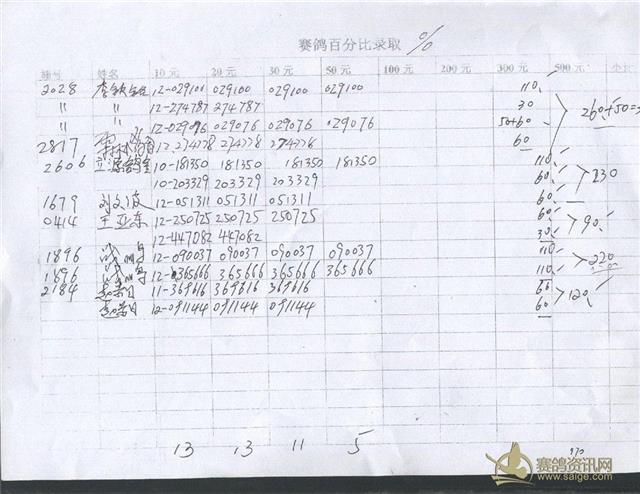 赛鸽百分比录取 %
编号 姓名 10元 20元 30元 50元 100元 200元 300元 500元 小计
2028 12-029100 029100 029100 029100 110
〃 〃 12-274787 274787 30 260+50=
〃 〃 12-029076 029076 029076 029076 50+60
2817 12-274778 274778 274778 60
2606 10-181350 181350 181350 181350 110
10-203329 203329 203329 60 230
1679 12-051311 051311 051311 60
0414 王亚东 12-250725 250725 250725 60 90
12-447082 447082 30
1896 12-090037 090037 090037 090037 110 220
1896 12-365666 365666 365666 365666 110
2184 11-369616 369616 369616 60 120
12-091144 091144 091144 60
13 13 11 5
970
赛鸽资讯网
www.saige.com